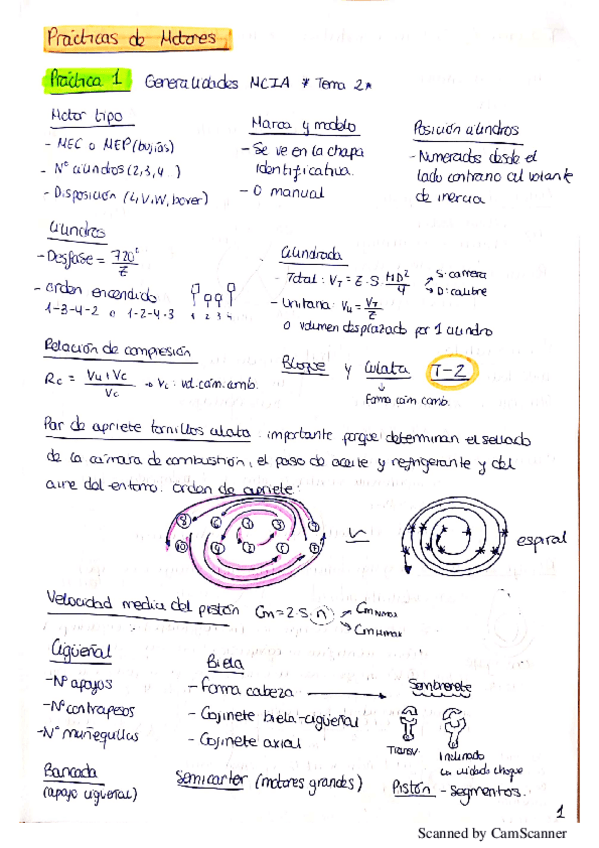 Prácticas de Motores
Práctica 1 Generalidades MCIA * Tema 2*
Motor tipo
- MEC o MEP (bujías)
- Nº cilindros (2,3,4..)
- Disposición (L,V,W, boxer)
Marca y modelo
- Se ve en la chapa
identificativa.
- O manual
Posición cilindros
- Numerados desde el
lado contrario al volante
de inercia
Cilindros
- Desfase = 720º/Z
- orden encendido
1-3-4-2 o 1-2-4-3
1 2 3 4
Cilindrada
- Total: VT = Z·S·ΠD²/4
S: carrera
D: calibre
- Unitaria: Vu = VT/Z
o volumen desplazado por 1 cilindro
Relación de compresión
Rc = Vu+Vc/Vc → Vc: vol. cám. comb.
Bloque y culata T-2
Forma cám comb.
Par de apriete tornillos culata: importante porque determinan el sellado
de la cámara de combustión, el paso de aceite y refrigerante y del
aire del entorno. Orden de apriete:
8 6 1 3 7
10 4 2 5 9
espiral
Velocidad media del pistón Cm = 2·S·n
Cm Nmax
Cm Mmax
Cigüeñal
- Nº apoyos
- Nº contrapesos
- Nº muñequillas
Biela
- Forma cabeza → Sombrerete
- Cojinete biela-cigüeñal
- Cojinete axial
Transv.
Inclinado
cuidado choque
Bancada
(apoyo cigüeñal)
Semicarter (motores grandes)
Pistón - Segmentos.
1
Scanned by CamScanner